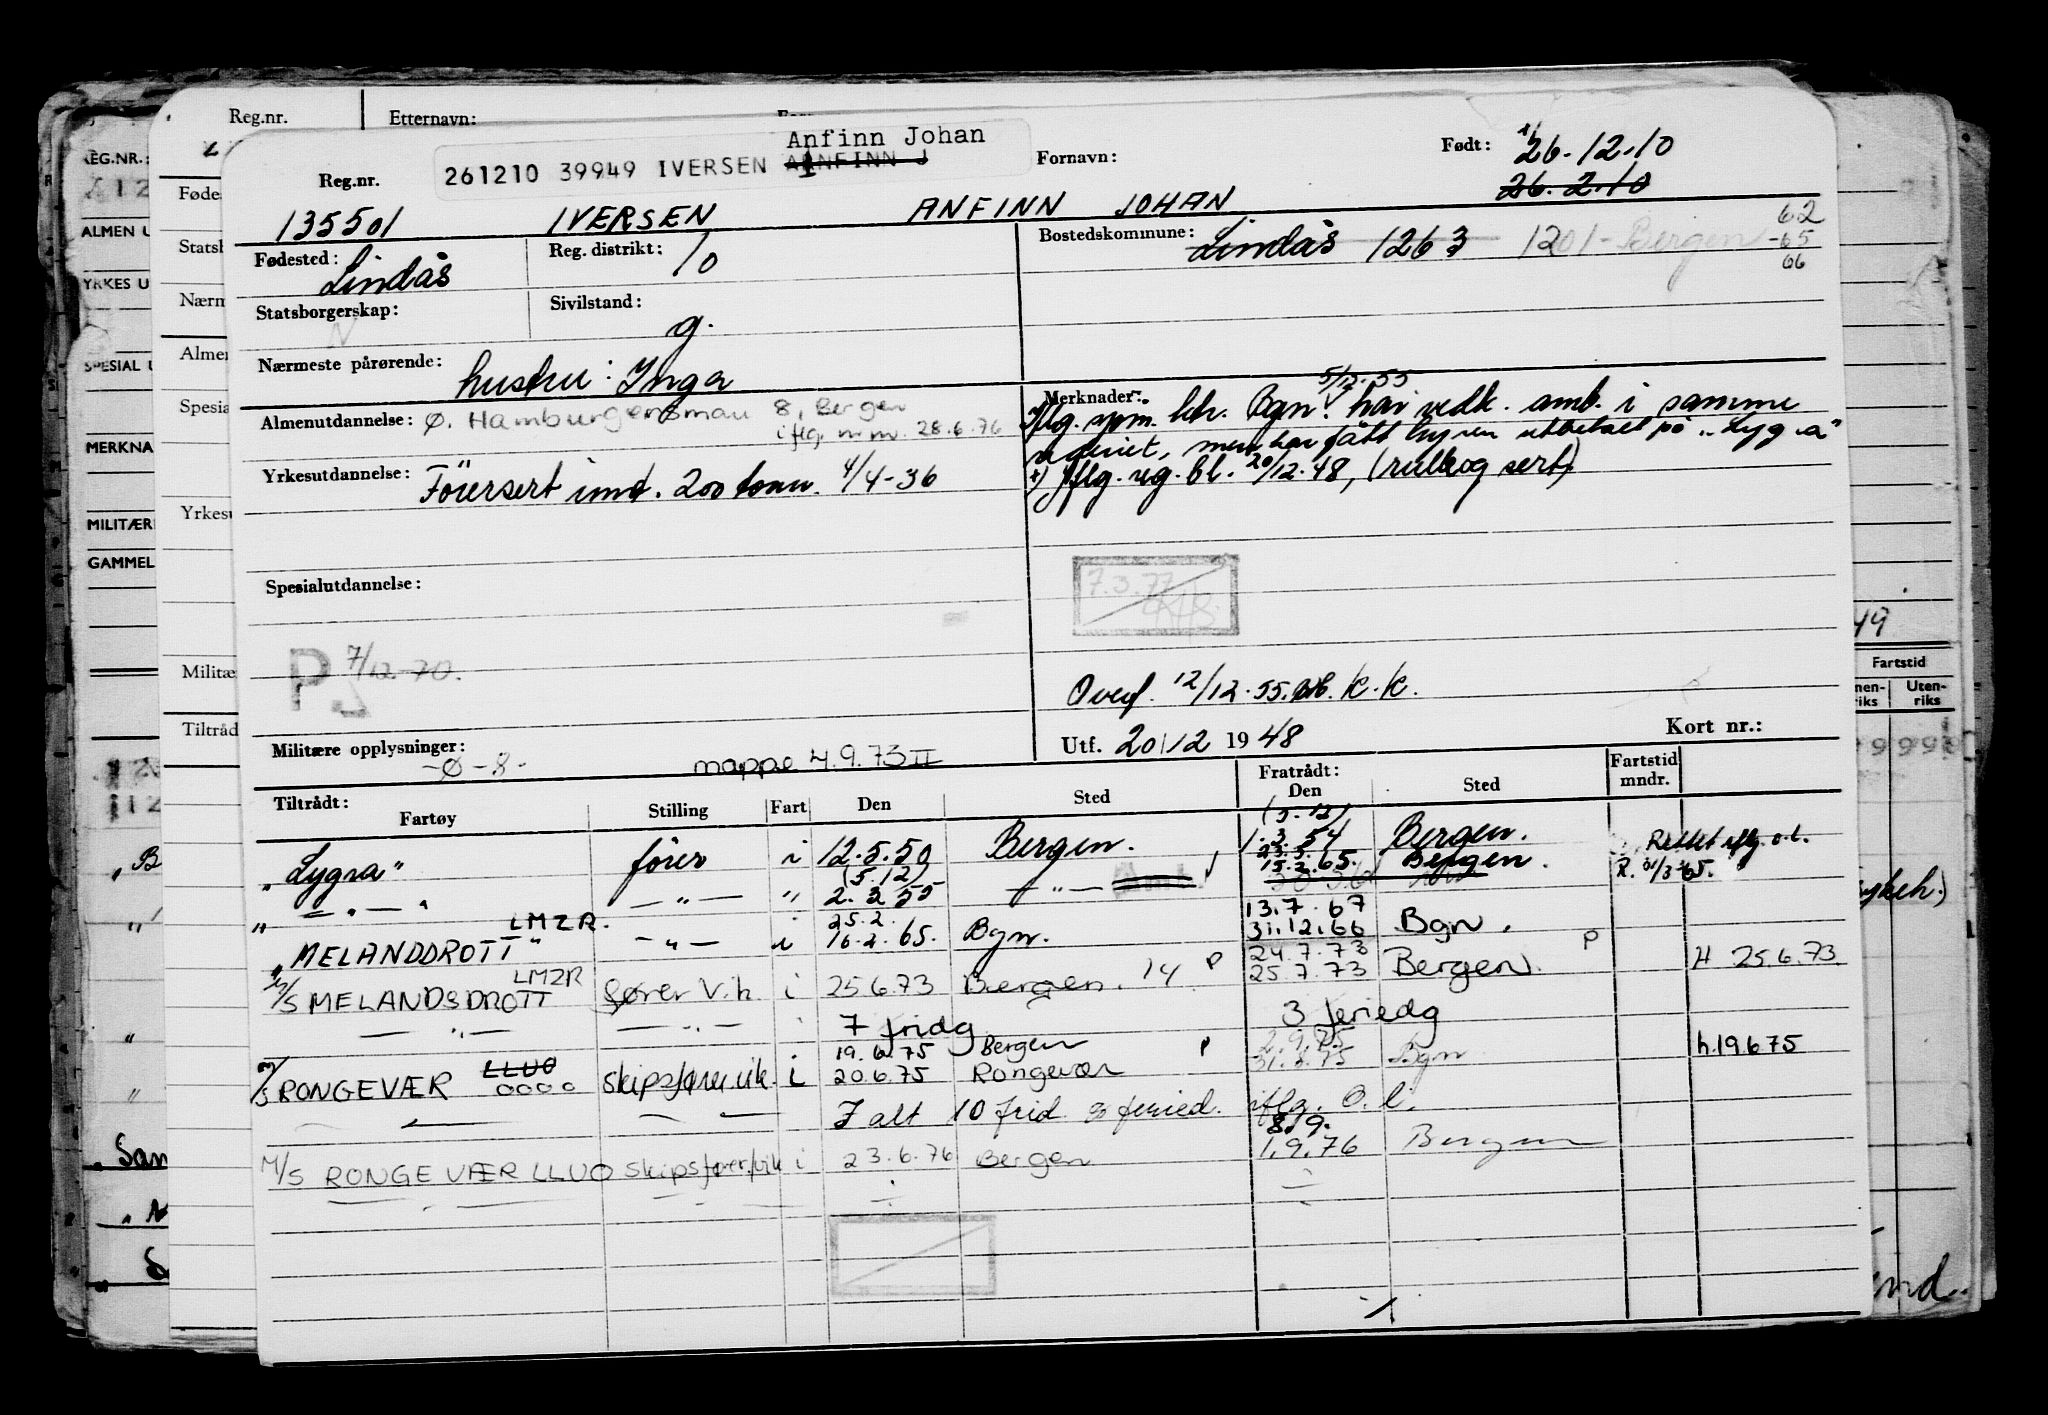 Reg.nr. Etternavn:
Anfinn Johan
261210 39949 IVERSEN
Reg.nr. Fornavn: Født: 26.12.10
26.2.10
135501 IVERSEN ANFINN JOHAN
Fødested: Lindås Reg. distrikt: 10 Bostedskommune: Lindås 1263 1201-Bergen 62
-65
66
Statsborgerskap: N Sivilstand: g.
Nærmeste pårørende: hustru: Inga
Almenutdannelse: Ø. Hamburgersmau 8, Bergen
iflg. m.m. 28.6.76
Yrkesutdannelse: Förersert innt. 200 tonn. 4/4-36
Merknader: 5/12.55
Iflg. spm. ktr. Bgn. har vedk. amb. i samme
men har fått hyren utbetalt på "Lygra"
x) Iflg. reg.bl. 20/12.48, (rulle og sert)
Spesialutdannelse:
7.3.77
P 7/12-70.
Overf. 12/12.55. K.K.
Militære opplysninger: -Ø-8- mappe 4.9.73 II
Utf. 20/12 1948 Kort nr.:
Tiltrådt: Fratrådt: Fartstid mndr.
Fartøy Stilling Fart Den Sted Den Sted
(5.12)
"Lygra" fører i 12.5.50 Bergen. 1.3.54 Bergen. Rettet iflg. o.l.
(5.12) 23.5.
— " — — " — " 2.3.55 — " — 15.2.65. Bergen. R. 31/3-65.
LMZR. 25.2. 13.7.67
"MELANDDROTT" — " — i 16.2.65. Bgn. 31.12.66 Bgn.
LMZR 24.7.73
M/S MELANDSDROTT fører V.k. i 25.6.73 Bergen. 14 P 25.7.73 Bergen. P H 25.6.73
— " — — " — 7 fridg 3 feriedg
19.6.75 Bergen P 2.9.75
M/S RONGEVÆR LLUO OOOO skipsfører.vik. i 20.6.75 Rongevær 31.8.75 Bgn h.19.6.75
I alt 10 frid og feried. iflg. O.l.
8/9.
M/S RONGEVÆR LLUO skipsfører/vik i 23.6.76 Bergen 1.9.76 Bergen
REG.NR.:
Føde
Statsb
Nærm
Almen
Spesia
Yrkesu
Militæ
Tiltråd
ALMEN U
YRKES U
SPESIAL U
MERKNA
MILITÆR
GAMMEL
49
Fartstid
Innen-
riks Uten-
riks